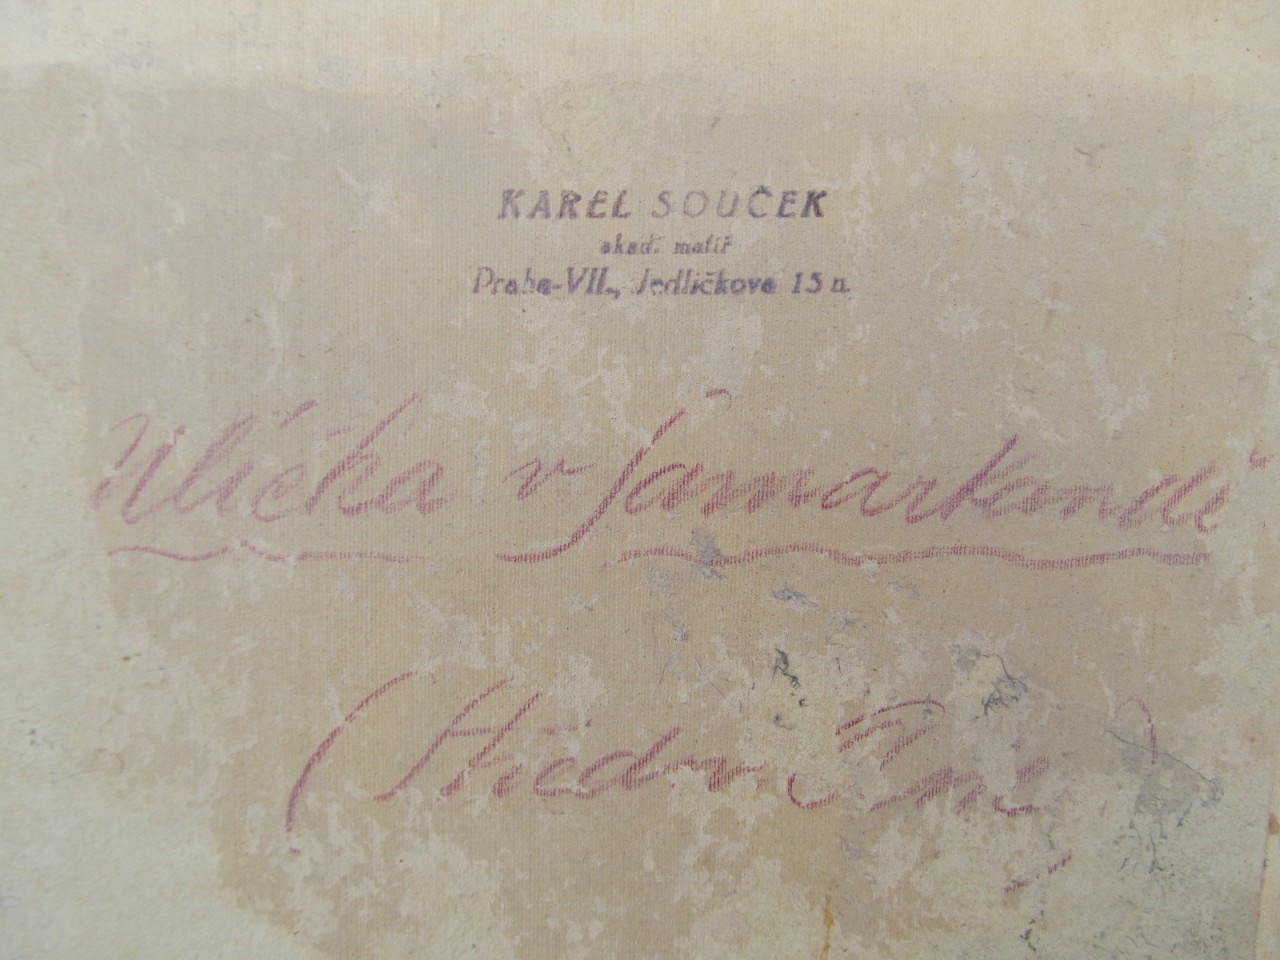 KAREL SOUČEK
akad. malíř
Praha-VII., Jedličkova 15 a
Ulička v Samarkandě"
(Střední